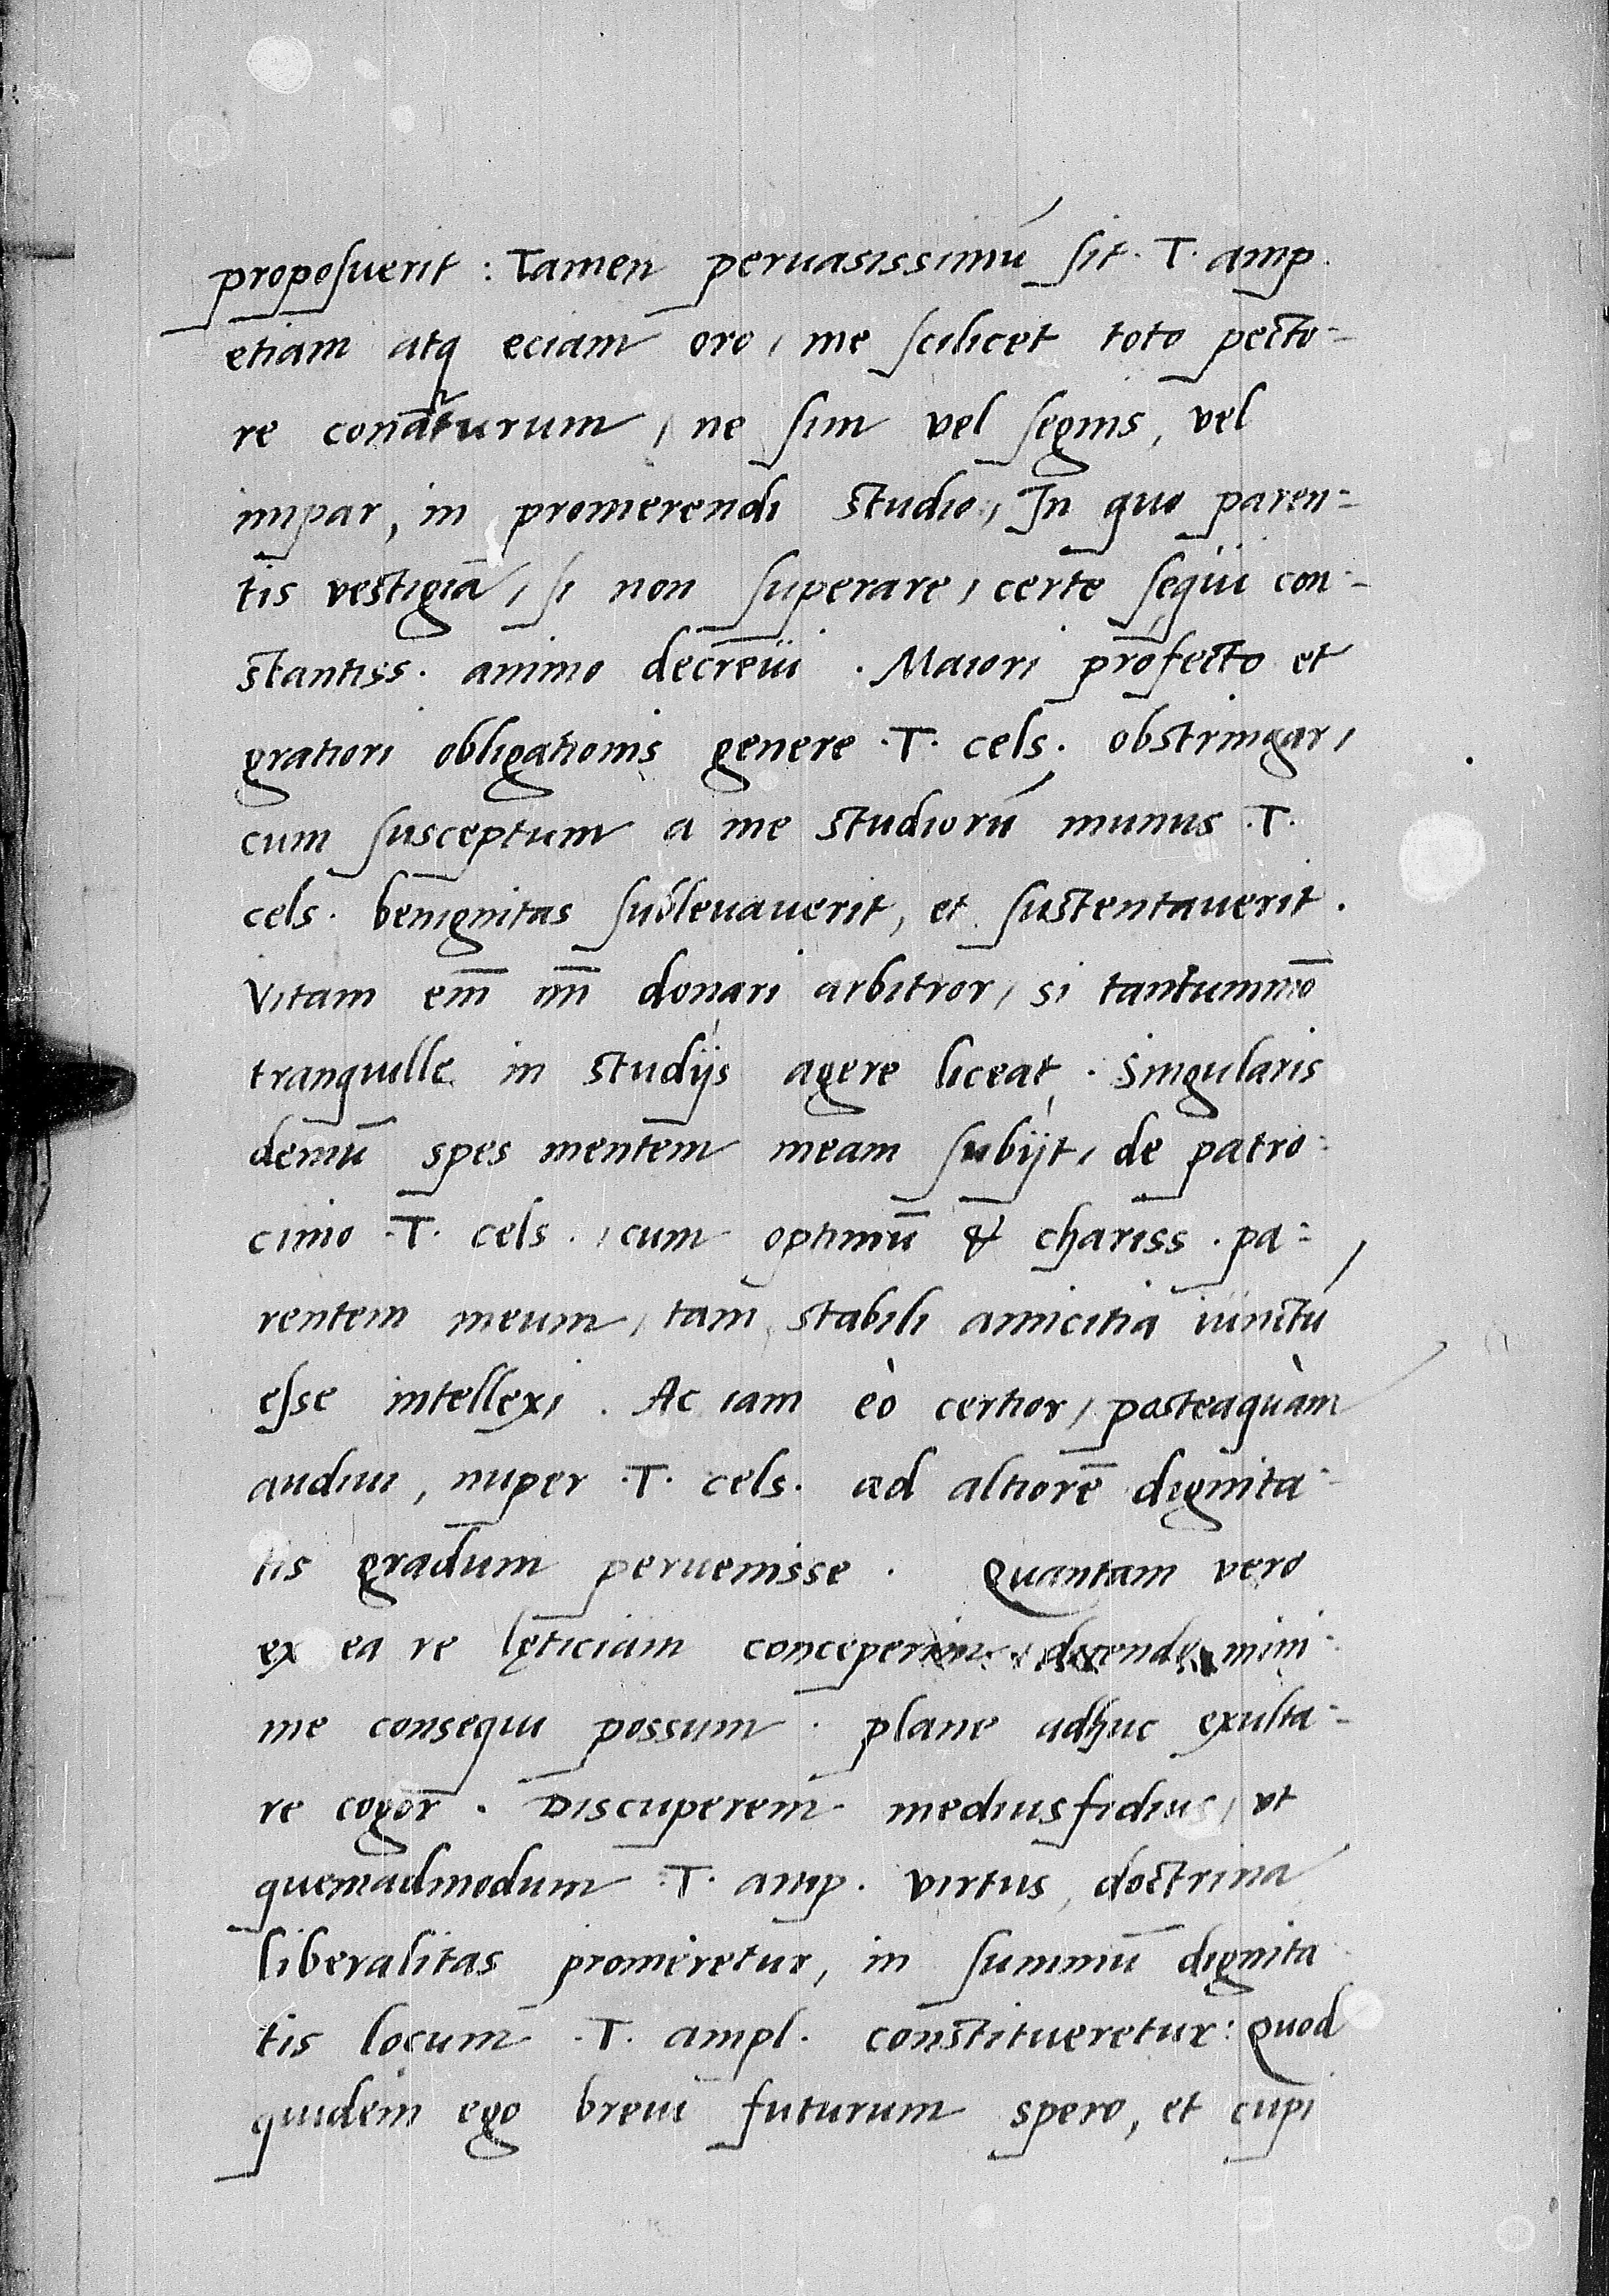 proposuerit : Tamen peruasissimū sit . T . amp .
etiam atq eciam oro , me scilicet toto pecto=
re conaturum , ne sim vel segnis , vel
impar , in promerendi studio , In quo paren=
tis vestigia , si non superare , certe sequi con=
stantiss . animo decreui . Maiori profecto et
gratiori obligationis genere . T . cels . obstringar ,
cum susceptum a me studiorū munus . T .
cels . benignitas subleuauerit , et sustentauerit .
Vitam em̄ m̄ donari arbitror , si tantummō
tranquille in studijs agere liceat . Singularis
demū spes mentem meam subijt , de patro=
cinio . T . cels . , cum optimū & chariss . pa=
rentem meum , tam stabili amicitia iunctū
esse intellexi . Ac iam eò certior , posteaquàm
audiui , nuper . T . cels . ad altiorē dignita=
tis gradum peruenisse . Quantam vero
ex ea re lęticiam conceperim , dicendo mini=
me consequi possum . plane adhuc exulta=
re cogor . Discuperem mediusfidius , vt
quemadmodum . T . amp . virtus , doctrina
liberalitas promeretur , in summū dignita
tis locum . T . ampl . constitueretur : Quod
quidem ego breui futurum spero , et cupi